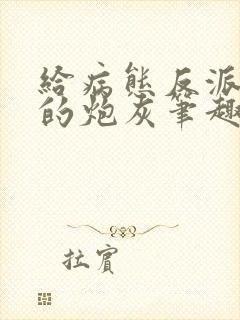 給病態反派
的炮灰筆趣
拉賓